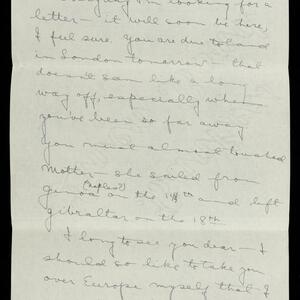 looking for a
letter – it will soon be here,
I feel sure. you are due to land
in London tomorrow – that
doesn't seem like a long
way off, especially when
you've been so far away
You must almost touched
Mother – she sailed from
(Naples?)
Genoa on the 14th and left
Gibraltar on the 18th
I long to see you dear – I
should so like to take you
over Europe myself that I